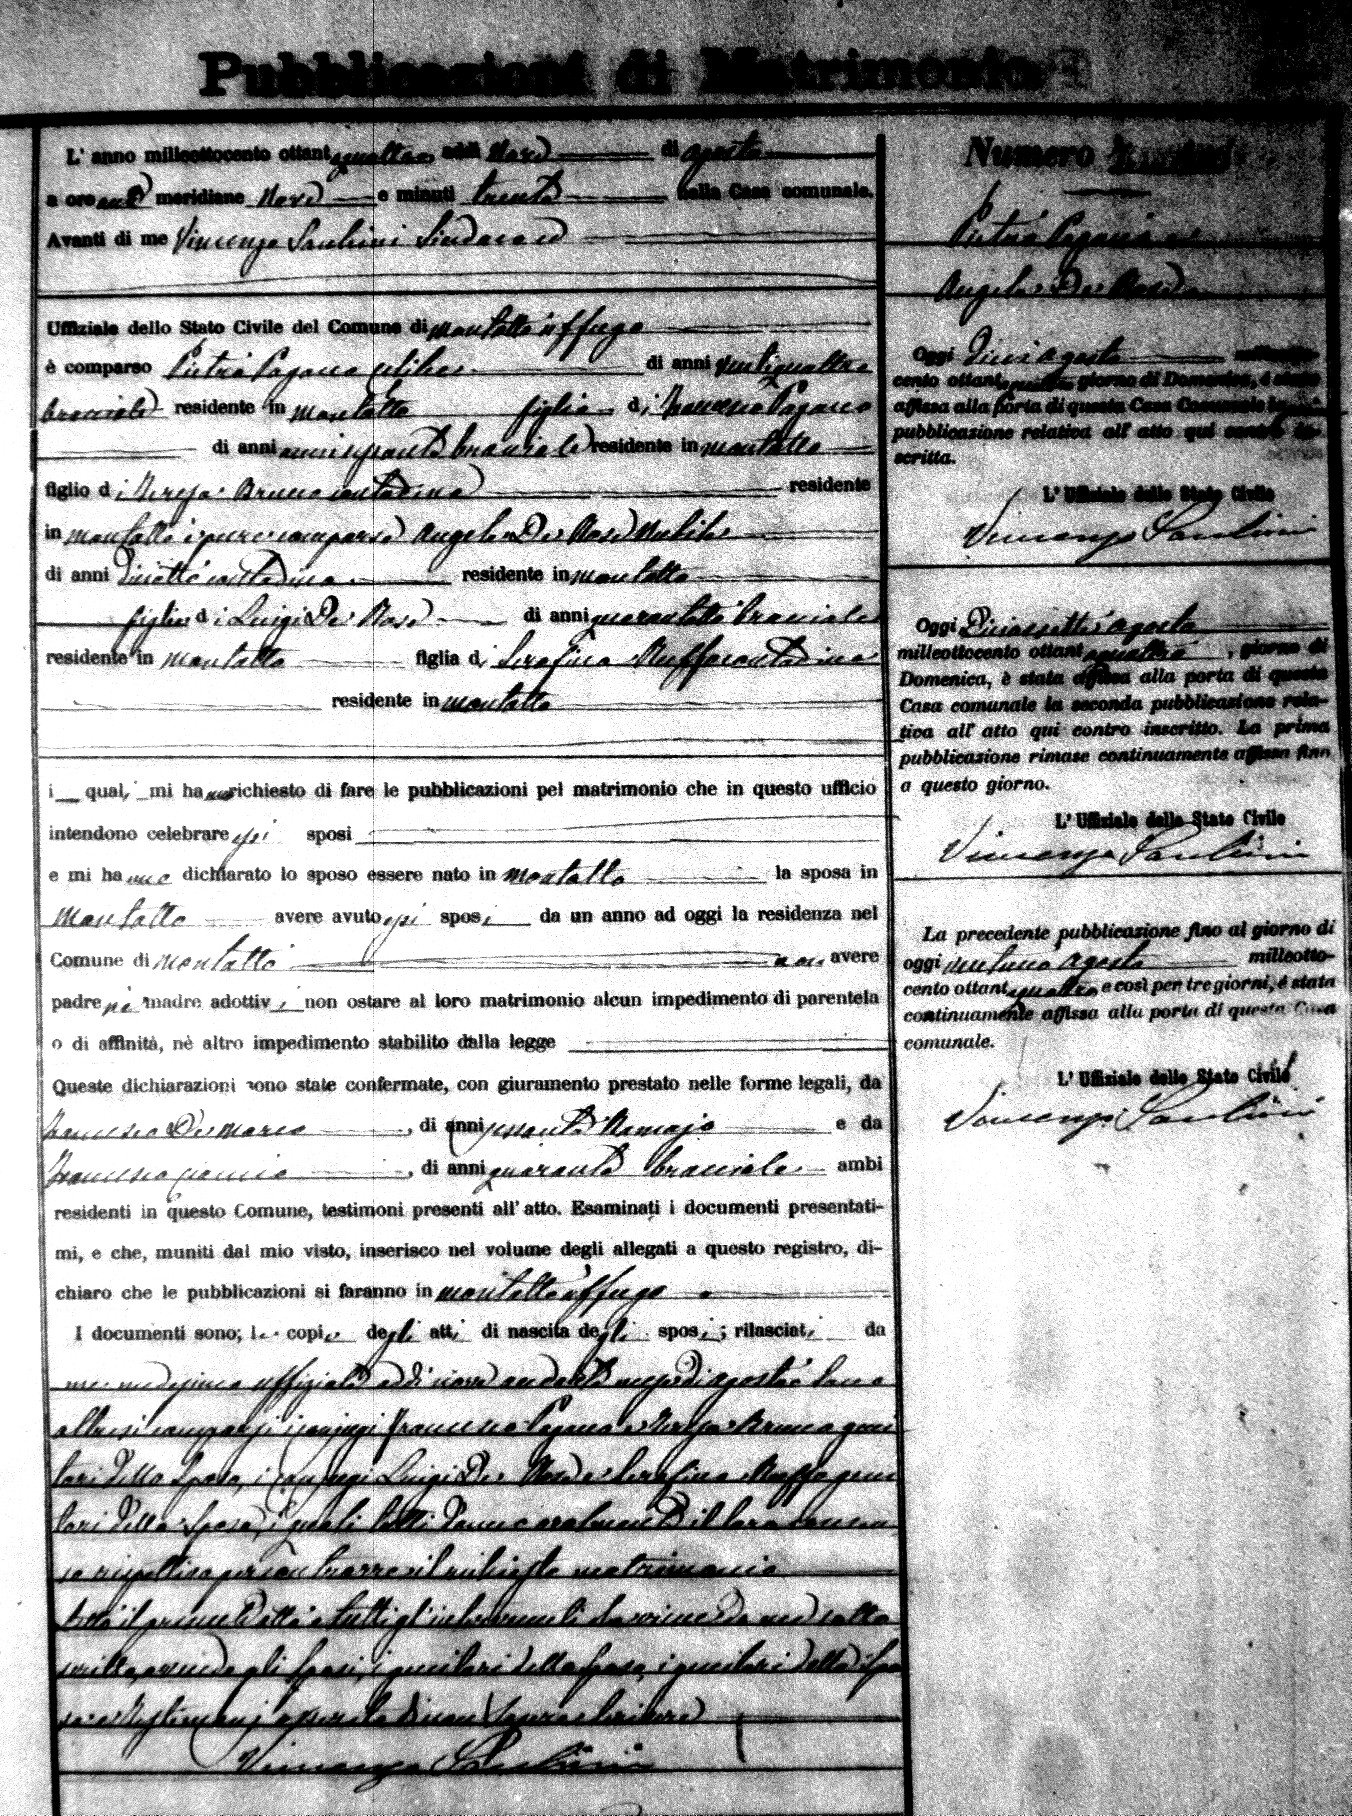 Pubblicazioni di Matrimonio
L' anno milleottocento ottantaquattro addì Nove di agosto
a ore anti meridiane Nove e minuti trenta nella Casa comunale.
Avanti di me Vincenzo Sindaco
Uffiziale dello Stato Civile del Comune di Montalto Uffugo
è comparso Pietro Pagano celibe di anni ventiquattro
bracciale residente in Montalto figlio di Francesco Pagano
di anni bracciale residente in Montalto
figlio di Teresa Bruno contadina residente
in Montalto è pure comparsa Angela De Rose Nubile
di anni contadina residente in Montalto
figlia di Luigi De Rose di anni quarantotto bracciale
residente in Montalto figlia di Serafina Ruffo contadina
residente in Montalto
i quali mi hanno richiesto di fare le pubblicazioni pel matrimonio che in questo ufficio
intendono celebrare essi sposi
e mi hanno dichiarato lo sposo essere nato in Montalto la sposa in
Montalto avere avuto essi sposi da un anno ad oggi la residenza nel
Comune di Montalto non avere
padre nè madre adottivi non ostare al loro matrimonio alcun impedimento di parentela
o di affinità, nè altro impedimento stabilito dalla legge
Queste dichiarazioni sono state confermate, con giuramento prestato nelle forme legali, da
Francesco De Marco, di anni sessanta e da
Francesco, di anni quaranta bracciale ambi
residenti in questo Comune, testimoni presenti all' atto. Esaminati i documenti presentati-
mi, e che, muniti dal mio visto, inserisco nel volume degli allegati a questo registro, di-
chiaro che le pubblicazioni si faranno in Montalto Uffugo
I documenti sono; le copie degli atti di nascita degli sposi; rilasciati da
me medesimo uffiziale addì nove andante mese di agosto
altresi comparsi i conjugi Francesco Pagano e Teresa Bruno geni
tori dello Sposo, i Conjugi Luigi De Rose e Serafina Ruffo geni
tori della Sposa, i quali tutti danno oralmente il loro consen
so rispettivo per contrarre il richiesto matrimonio
Letto il presente atto a tutti gl' intervenuti da me sotto
scritto, avendo gli sposi, i genitori dello sposo, i genitori della spo
sa e testimonj asserito di non sapere scrivere
Vincenzo
Numero
Pietro Pagano e
Angela De Rose
Oggi Dieci agosto milleotto-
cento ottantaquattro giorno di Domenica, è stata
affissa alla porta di questa Casa Comunale la
pubblicazione relativa all' atto qui contro in-
scritta.
L' Uffiziale dello Stato Civile
Vincenzo
Oggi Diciassette agosto
milleottocento ottantaquattro, giorno di
Domenica, è stata affissa alla porta di questa
Casa comunale la seconda pubblicazione rela-
tiva all' atto qui contro inscritto. La prima
pubblicazione rimase continuamente affissa fino
a questo giorno.
L' Uffiziale dello Stato Civile
Vincenzo
La precedente pubblicazione fino al giorno di
oggi ventuno agosto milleotto-
cento ottantaquattro e così per tre giorni, è stata
continuamente affissa alla porta di questa Casa
comunale.
L' Uffiziale dello Stato Civile
Vincenzo